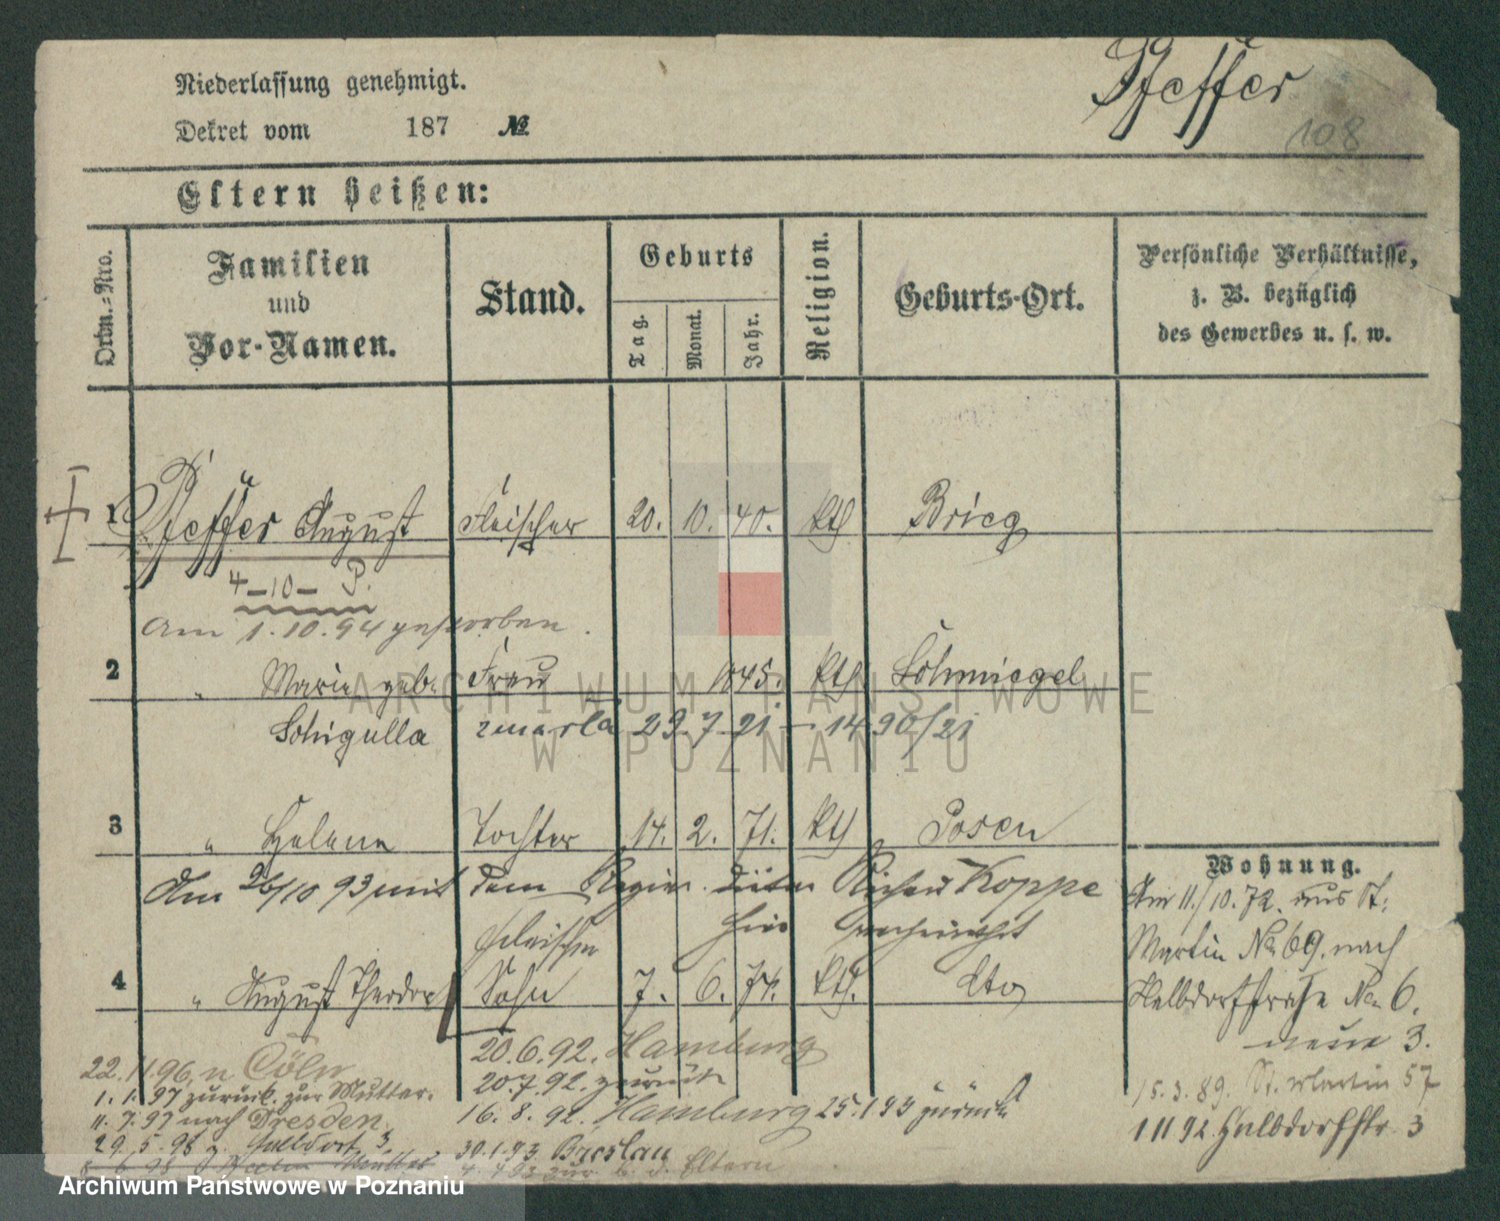 Niederlassung genehmigt.
Dekret vom 187 №
Pfeffer
108
Eltern heißen:
Ordn.-Nro.
Familien und Vor-Namen.
Stand.
Geburts
Tag.
Monat.
Jahr.
Religion.
Geburts-Ort.
Persönliche Verhältnisse,
z. B. bezüglich
des Gewerbes u. s. w.
1 Pfeffer August Fleischer 20. 10. 40. kth Brieg
4-10- P.
am 1.10.94 gestorben.
2 " Marie geb. Frau 1845. kth Schmiegel
Schigulla zmarla 29 7 21 - 1490/21
3 " Helene Tochter 14. 2. 71. kth Posen
Am 26/10 93 mit dem Koppe
hier verheirathet
Fleischer
4 " August Theodor Sohn 7. 6. 74. kth. dto
20.6.92. Hamburg
20.7.92. zurück
16.8.92. Hamburg 25.1.93 zurück
30.1.93 Breslau
4. 7 93 zur. z. d. Eltern
22.11.96. n Cöln
1.1.97 zurück. zur Mutter.
11.7.97 nach Dresden
29.5.98 Halbdorf 3.
Wohnung.
Am 11./10.72. aus St.
Martin No 69. nach
Halbdorfstraße No 6.
neue 3.
15.3.89. St. Martin 57
1 11 92 Halbdorfstr. 3
ARCHIWUM PAŃSTWOWE
W POZNANIU
Archiwum Państwowe w Poznaniu